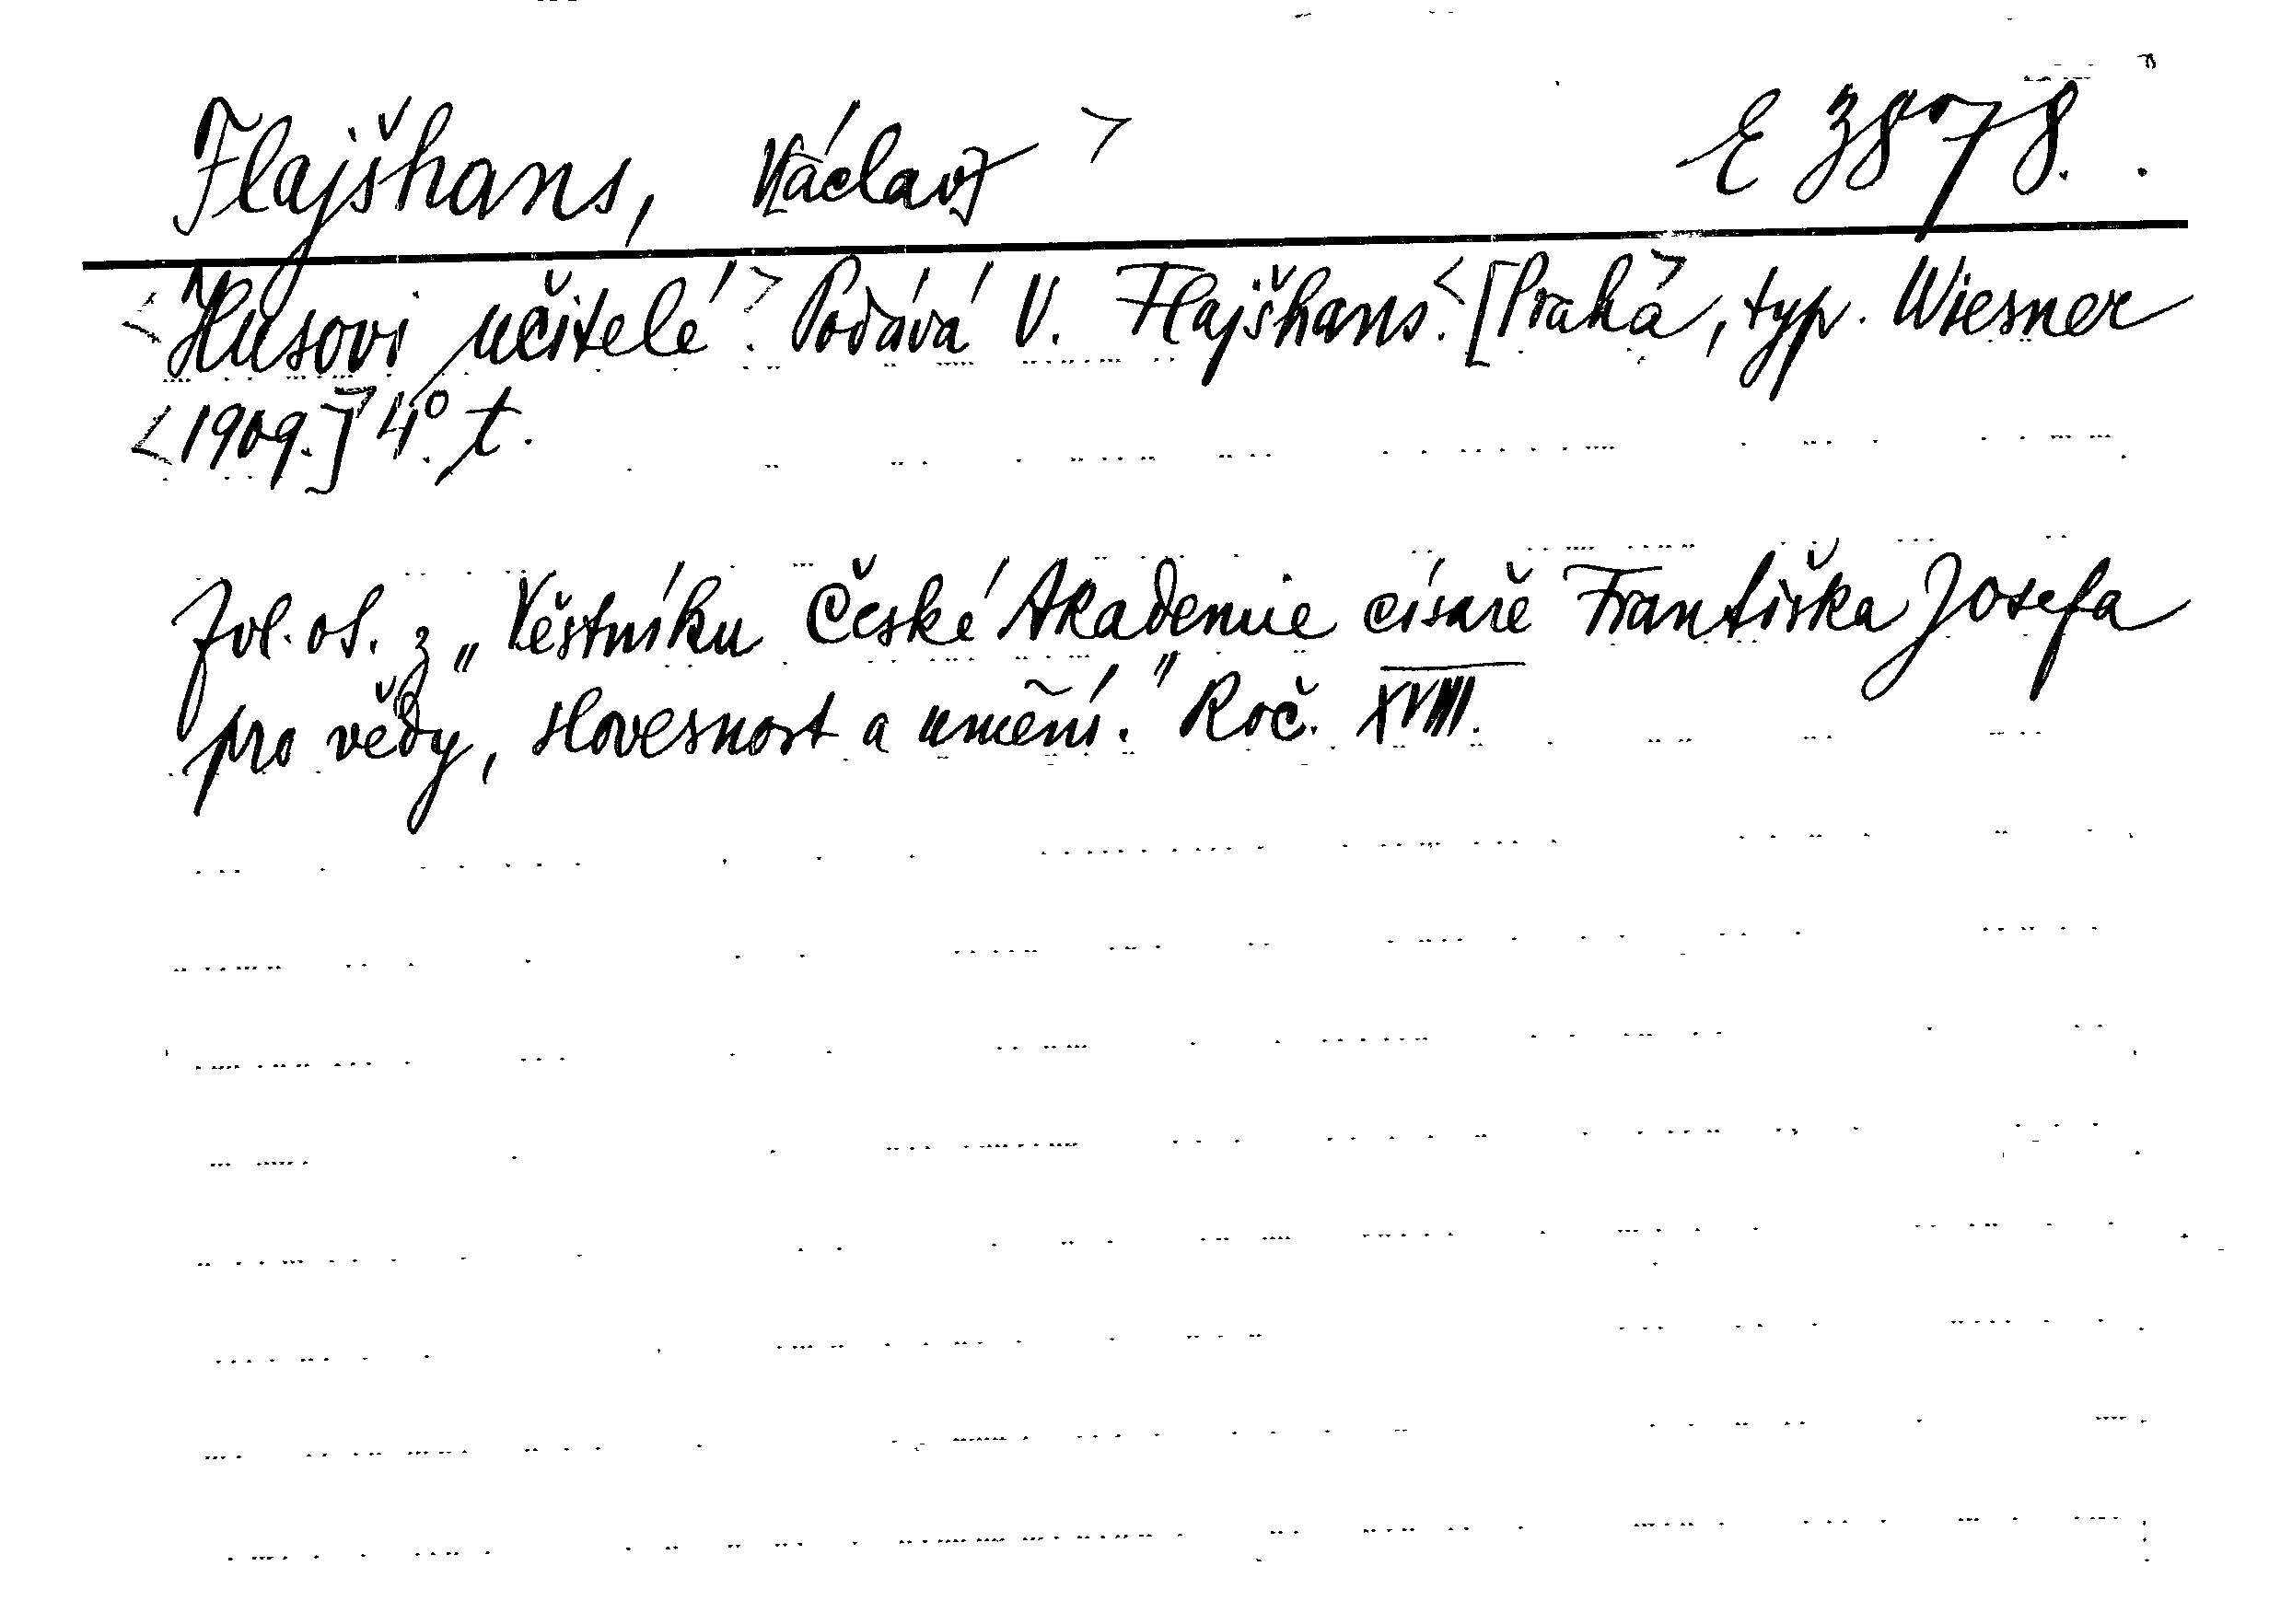 Flajšhans, V[áclav] > E 3878.
<Husovi učitelé.> Podává V. Flajšhans. <[Praha>, typ. Wiesner
<1909.]> 4°. t.
Zvl. ot. z „Věstníku České Akademie císaře Františka Josefa
pro vědy, slovesnost a umění." Roč. XVIII.